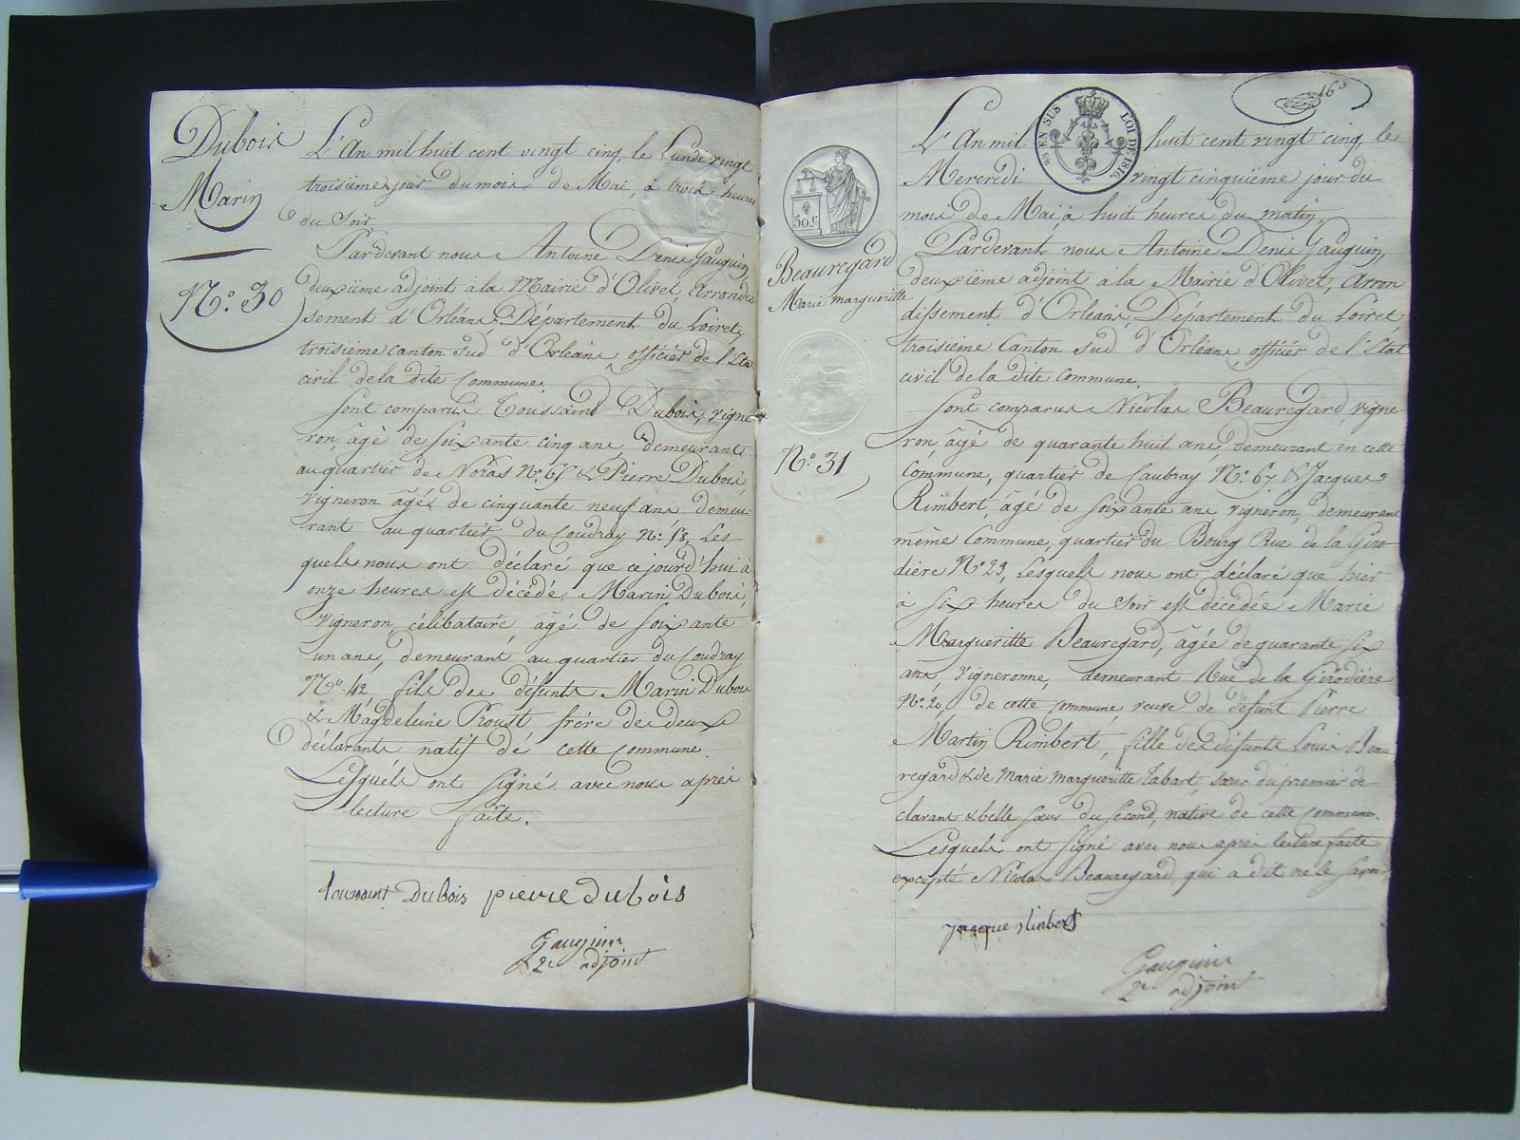 Dubois
Marin
N.º 30
L'An mil huit cent vingt cinq, le Lundi vingt
troisième jour du mois de Mai, à trois heures
du Soir
Pardevant nous Antoine Denis Gauguin,
deuxième adjoint à la Mairie d'Olivet, Arrondis
sement d'Orléans, Département du Loiret,
troisième Canton Sud d'Orléans, officier de l'Etat
civil de la dite Commune.
Sont comparus Toussaint Dubois, vigne
ron, âgé de soixante cinq ans, demeurant
au quartier de Noras Nº. & Pierre Dubois,
vigneron âgés de cinquante neuf ans demeu
rant au quartier du Coudray Nº. 58, Les
quels nous ont déclaré que ce jourd'hui à
onze heures est décédé, Marin Dubois,
vigneron, célibataire âgé de soixante
un ans, demeurant au quartier du Coudray
Nº. 42 fils des défunts Marin Dubois
& Magdeleine Proust frére de deux
déclarants natif de cette Commune
Lesquéls ont Signé avec nous après
lecture faite.
toussaint Dubois pierre dubois
Gauguin
2e adjoint
165
EN SUS LOI DE 1816
50c
Beauregard
Marie margueritte
Nº. 31
L'An mil huit cent vingt cinq, le
Mercredi vingt cinquième jour du
mois de Mai, à huit heures du matin,
Pardevant nous Antoine Denis Gauguin,
deuxième adjoint à la Mairie d'Olivet, Arron
dissement d'Orléans, Département du Loiret,
troisième Canton Sud d'Orléans, officier de l'Etat
civil de la dite Commune.
Sont comparus Nicolas Beauregard, vigne
ron, âgé de quarante huit ans, demeurant en cette
Commune, quartier de Caubray Nº. 67 & Jacques
Rimbert, âgé de soixante ans vigneron, demeurant
même Commune, quartier du Bourg Rue de la Giro
dière Nº 23, Lesquels nous ont déclaré que hier
à six heures du Soir est décédée Marie
Margueritte Beauregard, âgée de quarante six
ans, vigneronne, demeurant Rue de la Girodière
Nº. 20, de cette Commune, veuve de défunt Pierre
Martin Rimbert, fille des défunts Louis Beau
regard & de Marie margueritte Tabart, sœur du premier dé
clarant & belle sœur du Second, native de cette Commune.
Lesquels ont Signé avec nous après lecture faite
excepté Nicolas Beauregard qui a dit ne le savoir
Jacque Rimbert
Gauguin
2e adjoint